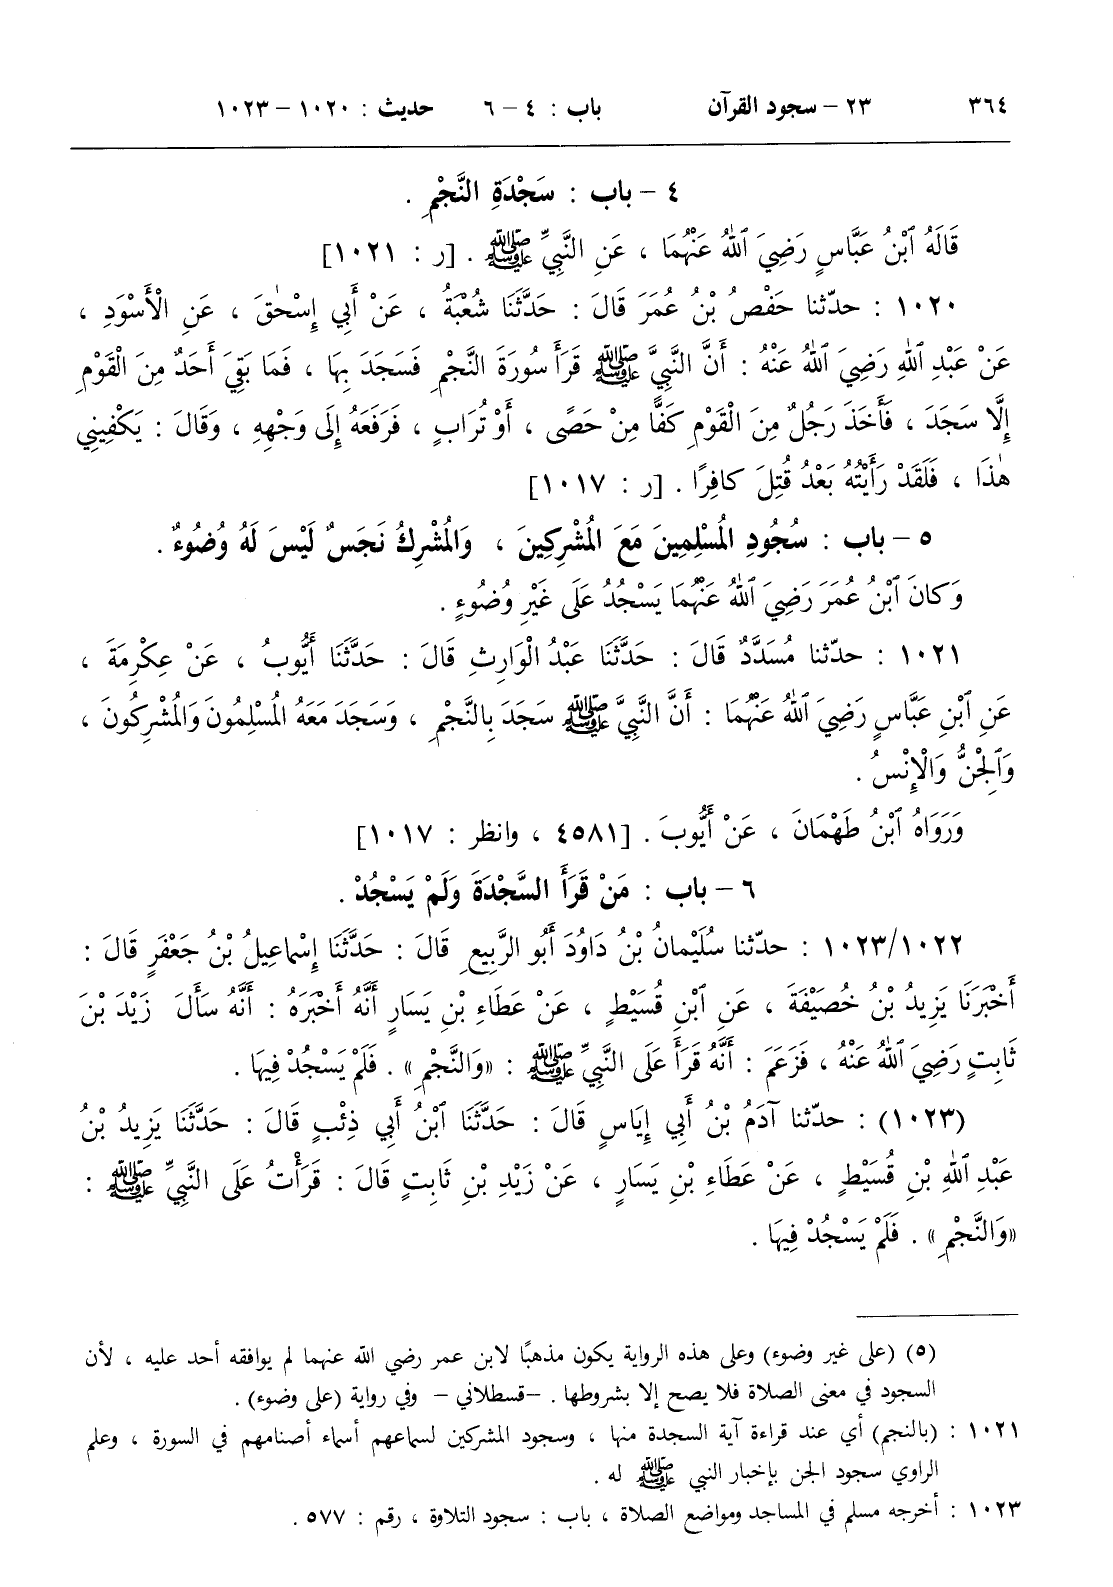 ٣٦٤ ٢٣ – سجود القرآن باب : ٤ – ٦ حديث : ١٠٢٠ – ١٠٢٣
٤ – باب : سَجْدَةِ النَّجْمِ .
قَالَهُ ٱبْنُ عَبَّاسٍ رَضِيَ ٱللهُ عَنْهُمَا ، عَنِ النَّبِيِّ ﷺ . [ر : ١٠٢١]
١٠٢٠ : حدّثنا حَفْصُ بْنُ عُمَرَ قَالَ : حَدَّثَنَا شُعْبَةُ ، عَنْ أَبِي إِسْحٰقَ ، عَنِ الْأَسْوَدِ ،
عَنْ عَبْدِ ٱللهِ رَضِيَ ٱللهُ عَنْهُ : أَنَّ النَّبِيَّ ﷺ قَرَأَ سُورَةَ النَّجْمِ فَسَجَدَ بِهَا ، فَمَا بَقِيَ أَحَدٌ مِنَ الْقَوْمِ
إِلَّا سَجَدَ ، فَأَخَذَ رَجُلٌ مِنَ الْقَوْمِ كَفًّا مِنْ حَصًى ، أَوْ تُرَابٍ ، فَرَفَعَهُ إِلَى وَجْهِهِ ، وَقَالَ : يَكْفِينِي
هٰذَا ، فَلَقَدْ رَأَيْتُهُ بَعْدُ قُتِلَ كافِرًا . [ر : ١٠١٧]
٥ – باب : سُجُودِ الْمُسْلِمِينَ مَعَ الْمُشْرِكِينَ ، وَالْمُشْرِكُ نَجَسٌ لَيْسَ لَهُ وُضُوءٌ .
وَكانَ ٱبْنُ عُمَرَ رَضِيَ ٱللهُ عَنْهُمَا يَسْجُدُ عَلَى غَيْرِ وُضُوءٍ .
١٠٢١ : حدّثنا مُسَدَّدٌ قَالَ : حَدَّثَنَا عَبْدُ الْوَارِثِ قَالَ : حَدَّثَنَا أَيُّوبُ ، عَنْ عِكْرِمَةَ ،
عَنِ ٱبْنِ عَبَّاسٍ رَضِيَ ٱللهُ عَنْهُمَا : أَنَّ النَّبِيَّ ﷺ سَجَدَ بِالنَّجْمِ ، وَسَجَدَ مَعَهُ الْمُسْلِمُونَ وَالْمُشْرِكُونَ ،
وَٱلْجِنُّ وَالْإِنْسُ .
وَرَوَاهُ ٱبْنُ طَهْمَانَ ، عَنْ أَيُّوبَ . [٤٥٨١ ، وانظر : ١٠١٧]
٦ – باب : مَنْ قَرَأَ السَّجْدَةَ وَلَمْ يَسْجُدْ .
١٠٢٣/١٠٢٢ : حدّثنا سُلَيْمانُ بْنُ دَاوُدَ أَبُو الرَّبِيعِ قَالَ : حَدَّثَنَا إِسْماعِيلُ بْنُ جَعْفَرٍ قَالَ :
أَخْبَرَنَا يَزِيدُ بْنُ خُصَيْفَةَ ، عَنِ ٱبْنِ قُسَيْطٍ ، عَنْ عَطَاءِ بْنِ يَسَارٍ أَنَّهُ أَخْبَرَهُ : أَنَّهُ سَأَلَ زَيْدَ بْنَ
ثَابِتٍ رَضِيَ ٱللهُ عَنْهُ ، فَزَعَمَ : أَنَّهُ قَرَأَ عَلَى النَّبِيِّ ﷺ : «وَالنَّجْمِ» . فَلَمْ يَسْجُدْ فِيهَا .
(١٠٢٣) : حدّثنا آدَمُ بْنُ أَبِي إِيَاسٍ قَالَ : حَدَّثَنَا ٱبْنُ أَبِي ذِئْبٍ قَالَ : حَدَّثَنَا يَزِيدُ بْنُ
عَبْدِ ٱللهِ بْنِ قُسَيْطٍ ، عَنْ عَطَاءِ بْنِ يَسَارٍ ، عَنْ زَيْدِ بْنِ ثَابِتٍ قَالَ : قَرَأْتُ عَلَى النَّبِيِّ ﷺ :
«وَالنَّجْمِ» . فَلَمْ يَسْجُدْ فِيهَا .
(٥) (على غير وضوء) وعلى هذه الرواية يكون مذهبًا لابن عمر رضي الله عنهما لم يوافقه أحد عليه ، لأن
السجود في معنى الصلاة فلا يصح إلا بشروطها . –قسطلاني – وفي رواية (على وضوء) .
١٠٢١ : (بالنجم) أي عند قراءة آية السجدة منها ، وسجود المشركين لسماعهم أسماء أصنامهم في السورة ، وعلم
الراوي سجود الجن بإخبار النبي ﷺ له .
١٠٢٣ : أخرجه مسلم في المساجد ومواضع الصلاة ، باب : سجود التلاوة ، رقم : ٥٧٧ .